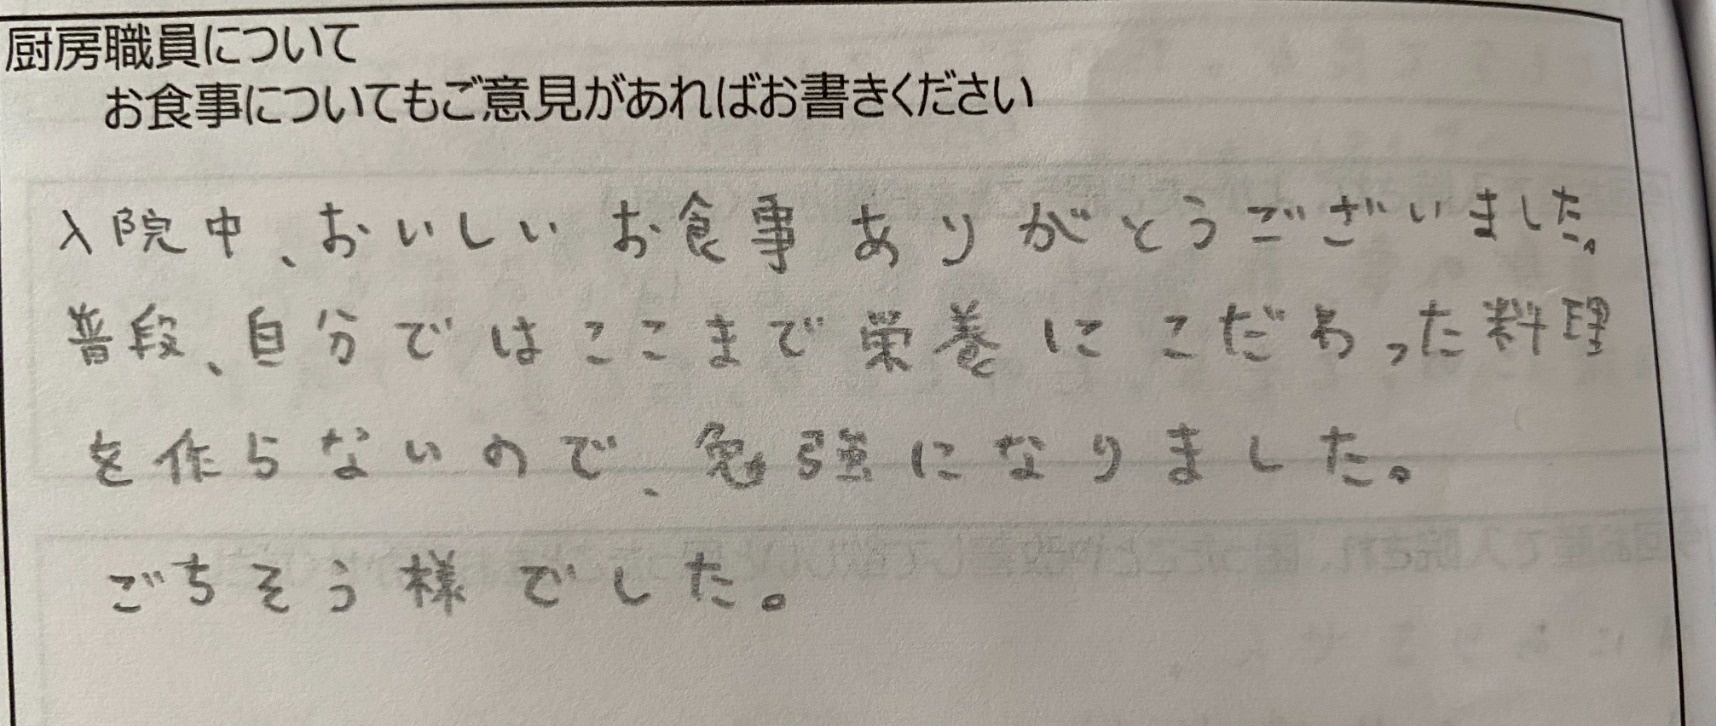 厨房職員について
お食事についてもご意見があればお書きください
入院中、おいしいお食事ありがとうございました。
普段、自分ではここまで栄養にこだわった料理
を作らないので、勉強になりました。
ごちそう様でした。